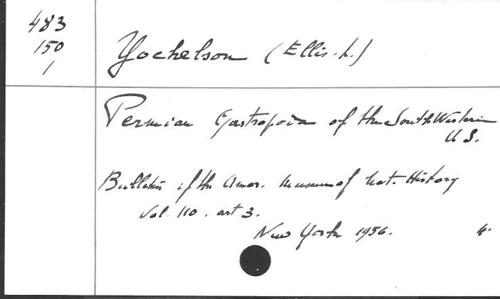 483
150
1
Yochelson (Ellis. L.)
Permian Gastropoda of the South Western
U S.
Bulletin of the Amer. Museum of Nat. History
Vol. 110. art 3.
New York 1956. 4.